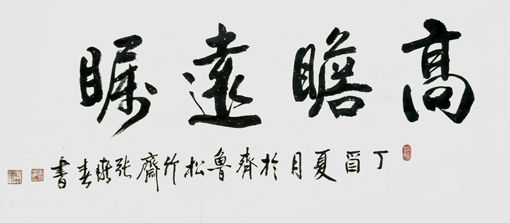 高瞻遠瞩
丁酉夏月於齊魯松竹齋张春書